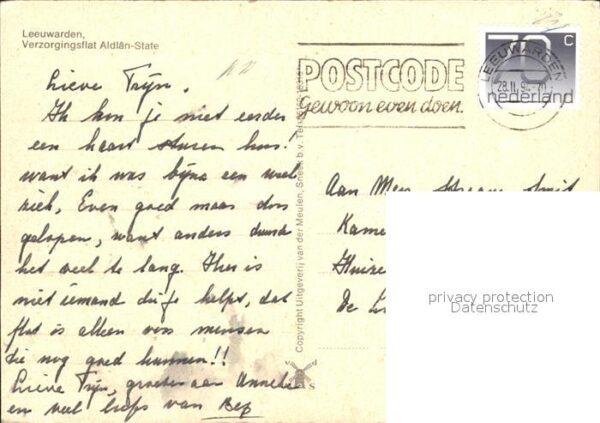 Leeuwarden,
Verzorgingsflat Aldlân-State
POSTCODE
Gewoon even doen.
70 c
nederland
LEEUWARDEN
28.11.9
Lieve Trijn.
Ik kon je niet eerder
een kaart sturen hoor!
want ik was bijna een week
ziek, Even goed maar door
gelopen, want anders duurde
het veel te lang. Hier is
niet iemand die je helpt, dat
flat is alleen voor mensen
die nog goed kunnen!!
Lieve Trijn, groeten aan Anneke
en veel liefs van Bep
Copyright Uitgeverij van der Meulen, Sneek b.v. Tel.
Aan Mevr. Smid
Kame
Huize
De L
privacy protection
Datenschutz